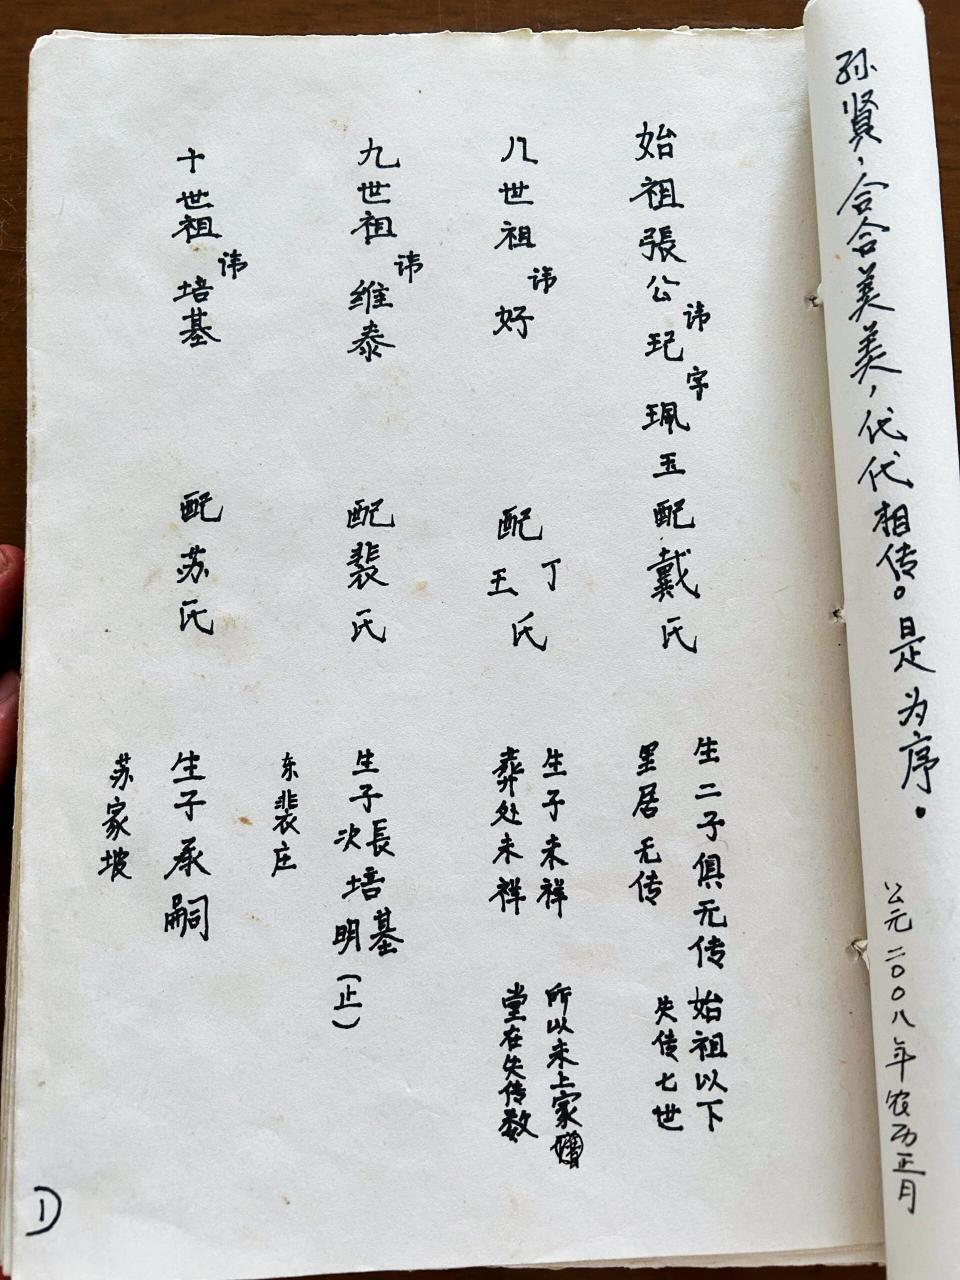 孙贤，合合美美，代代相传。是为序。
公元二〇〇八年农历正月
始祖張公讳玘字珮玉配戴氏
生二子俱无传
里居无传
始祖以下
失传七世
八世祖讳好
配丁王氏
生子未祥
葬处未祥
所以未上家
堂在失传数
九世祖讳维泰
配裴氏
生子長培基
次明(止)
东裴庄
十世祖讳培基
配苏氏
生子承嗣
苏家坡
1